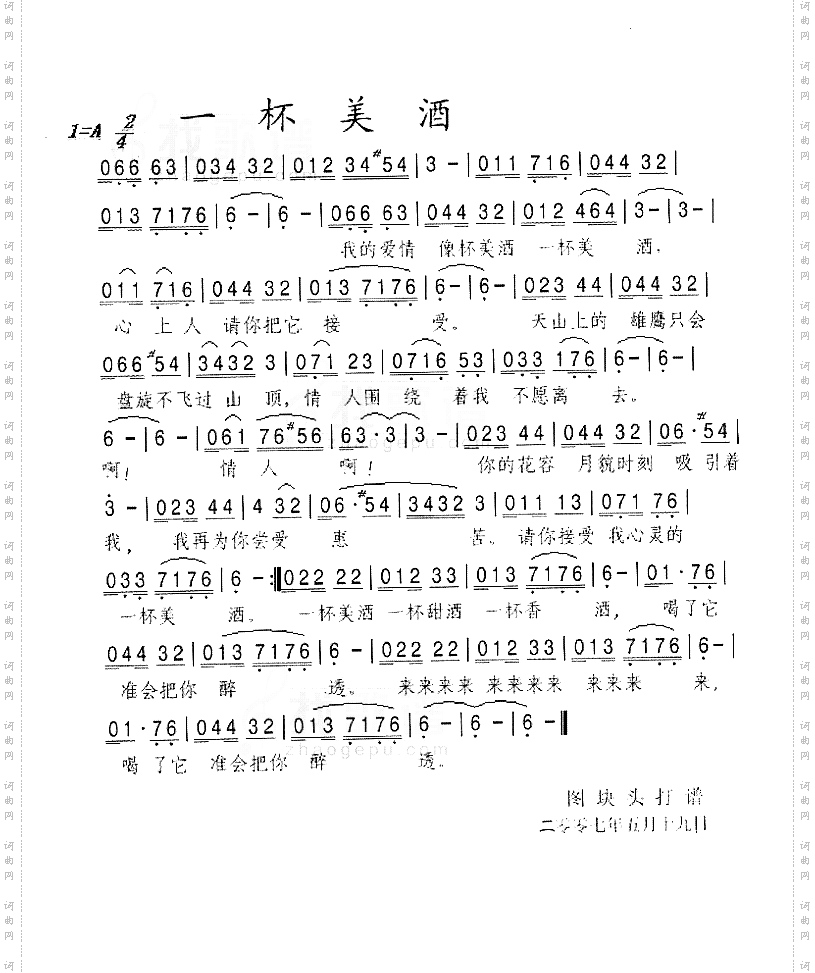 一 杯 美 酒
1=A 2/4
066 63|034 32|012 34#54|3 -|011 716|044 32|
013 7176|6 -|6 -|066 63|044 32|012 464|3 -|3 -|
我的爱情 像杯美酒 一杯美 酒。
011 716|044 32|013 7176|6 -|6 -|023 44|044 32|
心 上人 请你把它 接 受。 天山上的 雄鹰只会
066#54|3432 3|071 23|0716 53|033 176|6 -|6 -|
盘旋不飞过 山 顶, 情 人围 绕 着我 不愿离 去。
6 -|6 -|061 76#56|63·3|3 -|023 44|044 32|06·#54|
啊! 情 人 啊! 你的花容 月貌时刻 吸 引着
3 -|023 44|4 32|06·#54|3432 3|011 13|071 76|
我, 我再为你尝受 惠 苦。 请你接受 我心灵的
033 7176|6 -:‖022 22|012 33|013 7176|6 -|01·76|
一杯美 酒。 一杯美酒 一杯甜酒 一杯香 酒, 喝了它
044 32|013 7176|6 -|022 22|012 33|013 7176|6 -|
准会把你 醉 透。 来来来来 来来来来 来来来 来,
01·76|044 32|013 7176|6 -|6 -|6 -‖
喝 了它 准会把你 醉 透。
zhaogepu.com
图 块 头 打 谱
二零零七年五月十九日
词曲网